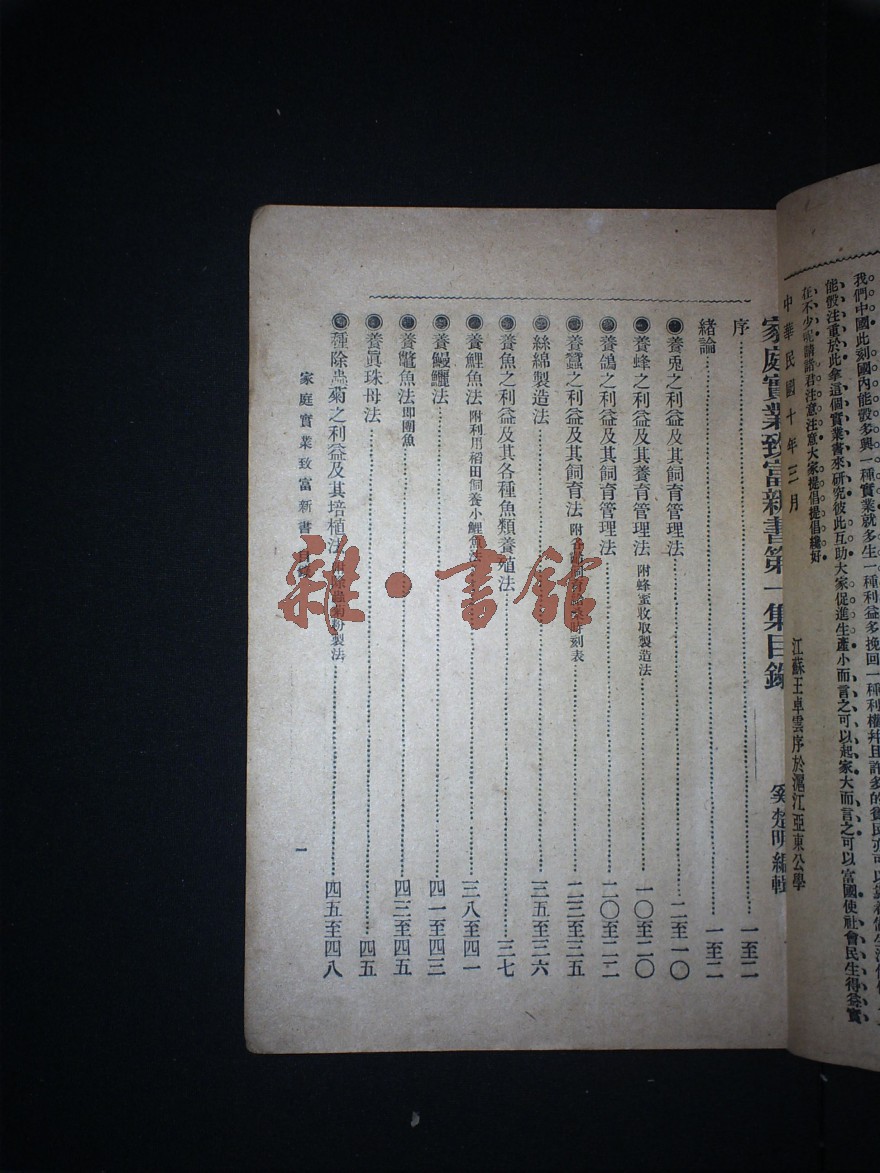 我們中國此刻國內能彀多興一種實業就多生一種利益多挽回一種利權幷且許多的貧民亦可以
能彀注重於此拿這個實業書來研究彼此互助大家促進生產小而言之可以起家大而言之可以富國使社會民生得益實
在不少呢請諸君注意注意大家提倡提倡纔好
中華民國十年三月
江蘇王卓雲序於滬江亞東公學
家庭實業致富新書第一集目錄
奚楚明編輯
序 一至二
緒論 一至二
養兎之利益及其飼育管理法 二至一〇
養蜂之利益及其養育管理法 附蜂蜜收取製造法 一〇至二〇
養鴿之利益及其飼育管理法 二〇至二二
養蠶之利益及其飼育法 時刻表 二三至三五
絲綿製造法 三五至三六
養魚之利益及其各種魚類養殖法 三七
養鯉魚法 附利用稻田飼養小鯉魚法 三八至四一
養鰻鱺法 四一至四三
養鼈魚法 即團魚 四三至四五
養眞珠母法 四五
種除蟲菊之利益及其培植法 附除蟲菊粉製法 四五至四八
家庭實業致富新書 目錄
一
雜·書館